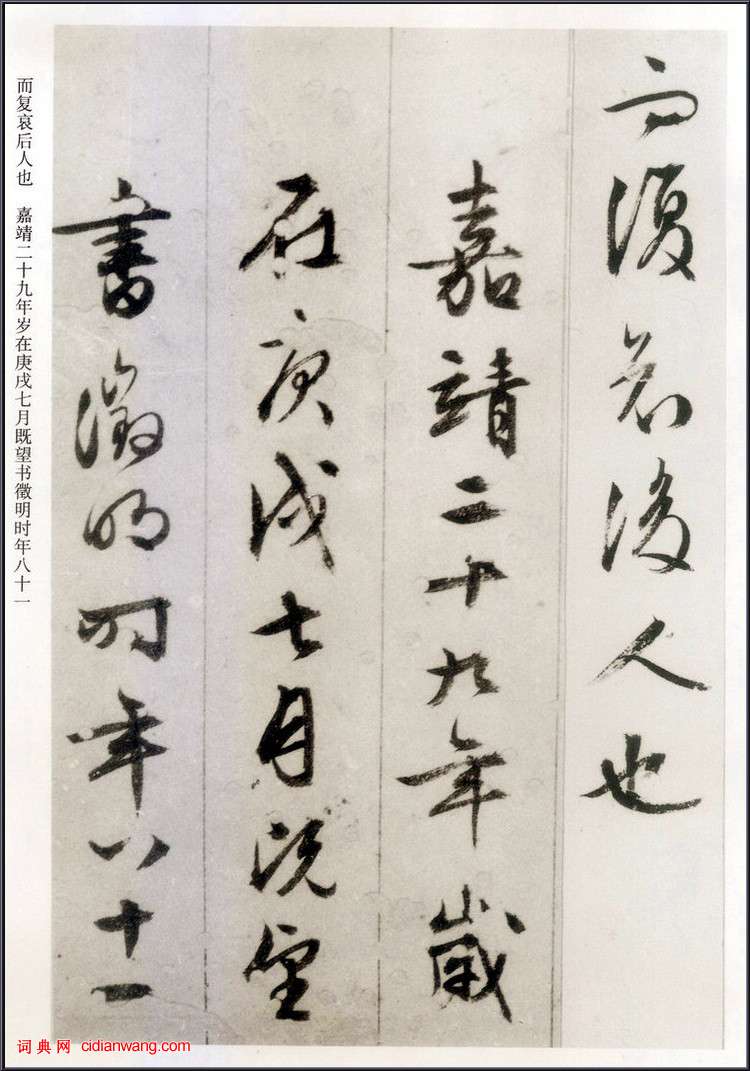 而復哀後人也
嘉靖二十九年歲
在庚戌七月既望
書徵明时年八十一
而复哀后人也 嘉靖二十九年岁在庚戌七月既望书徵明时年八十一
词典网 cidianwang.com